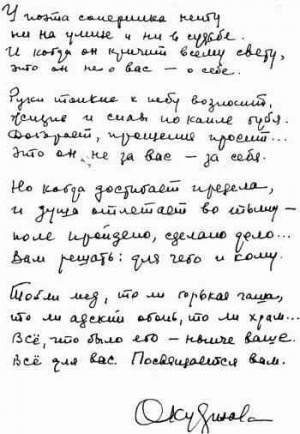 У поэта соперника нету
ни на улице и ни в судьбе.
И когда он кричит всему свету,
это он не о вас — о себе.

Руки тонкие к небу возносит,
жизнь и силы по капле губя.
Догорает, прощения просит...
Это он не за вас — за себя.

Но когда достигает предела,
и душа отлетает во тьму —
поле пройдено, сделано дело...
Вам решать: для чего и кому.

То ли мед, то ли горькая чаша,
то ли адский огонь, то ли храм...
Всё, что было его — нынче ваше.
Всё для вас. Посвящается вам.

Окуджава